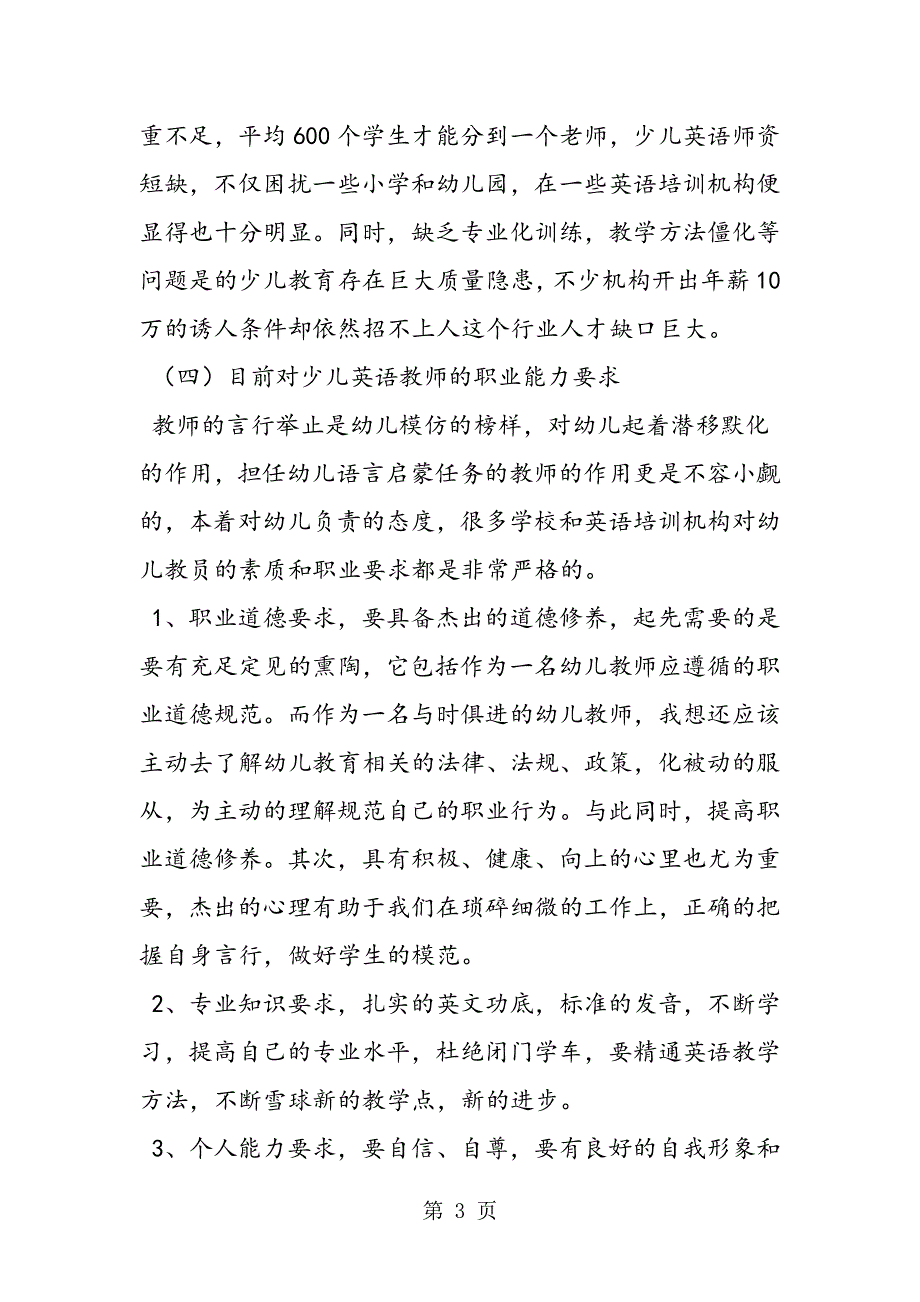 重不足，平均600个学生才能分到一个老师，少儿英语师资
短缺，不仅困扰一些小学和幼儿园，在一些英语培训机构便
显得也十分明显。同时，缺乏专业化训练，教学方法僵化等
问题是的少儿教育存在巨大质量隐患，不少机构开出年薪10
万的诱人条件却依然招不上人这个行业人才缺口巨大。
（四）目前对少儿英语教师的职业能力要求
教师的言行举止是幼儿模仿的榜样，对幼儿起着潜移默化
的作用，担任幼儿语言启蒙任务的教师的作用更是不容小觑
的，本着对幼儿负责的态度，很多学校和英语培训机构对幼
儿教员的素质和职业要求都是非常严格的。
1、职业道德要求，要具备杰出的道德修养，起先需要的是
要有充足定见的熏陶，它包括作为一名幼儿教师应遵循的职
业道德规范。而作为一名与时俱进的幼儿教师，我想还应该
主动去了解幼儿教育相关的法律、法规、政策，化被动的服
从，为主动的理解规范自己的职业行为。与此同时，提高职
业道德修养。其次，具有积极、健康、向上的心里也尤为重
要，杰出的心理有助于我们在琐碎细微的工作上，正确的把
握自身言行，做好学生的模范。
2、专业知识要求，扎实的英文功底，标准的发音，不断学
习，提高自己的专业水平，杜绝闭门学车，要精通英语教学
方法，不断雪球新的教学点，新的进步。
3、个人能力要求，要自信、自尊，要有良好的自我形象和
第 3 页